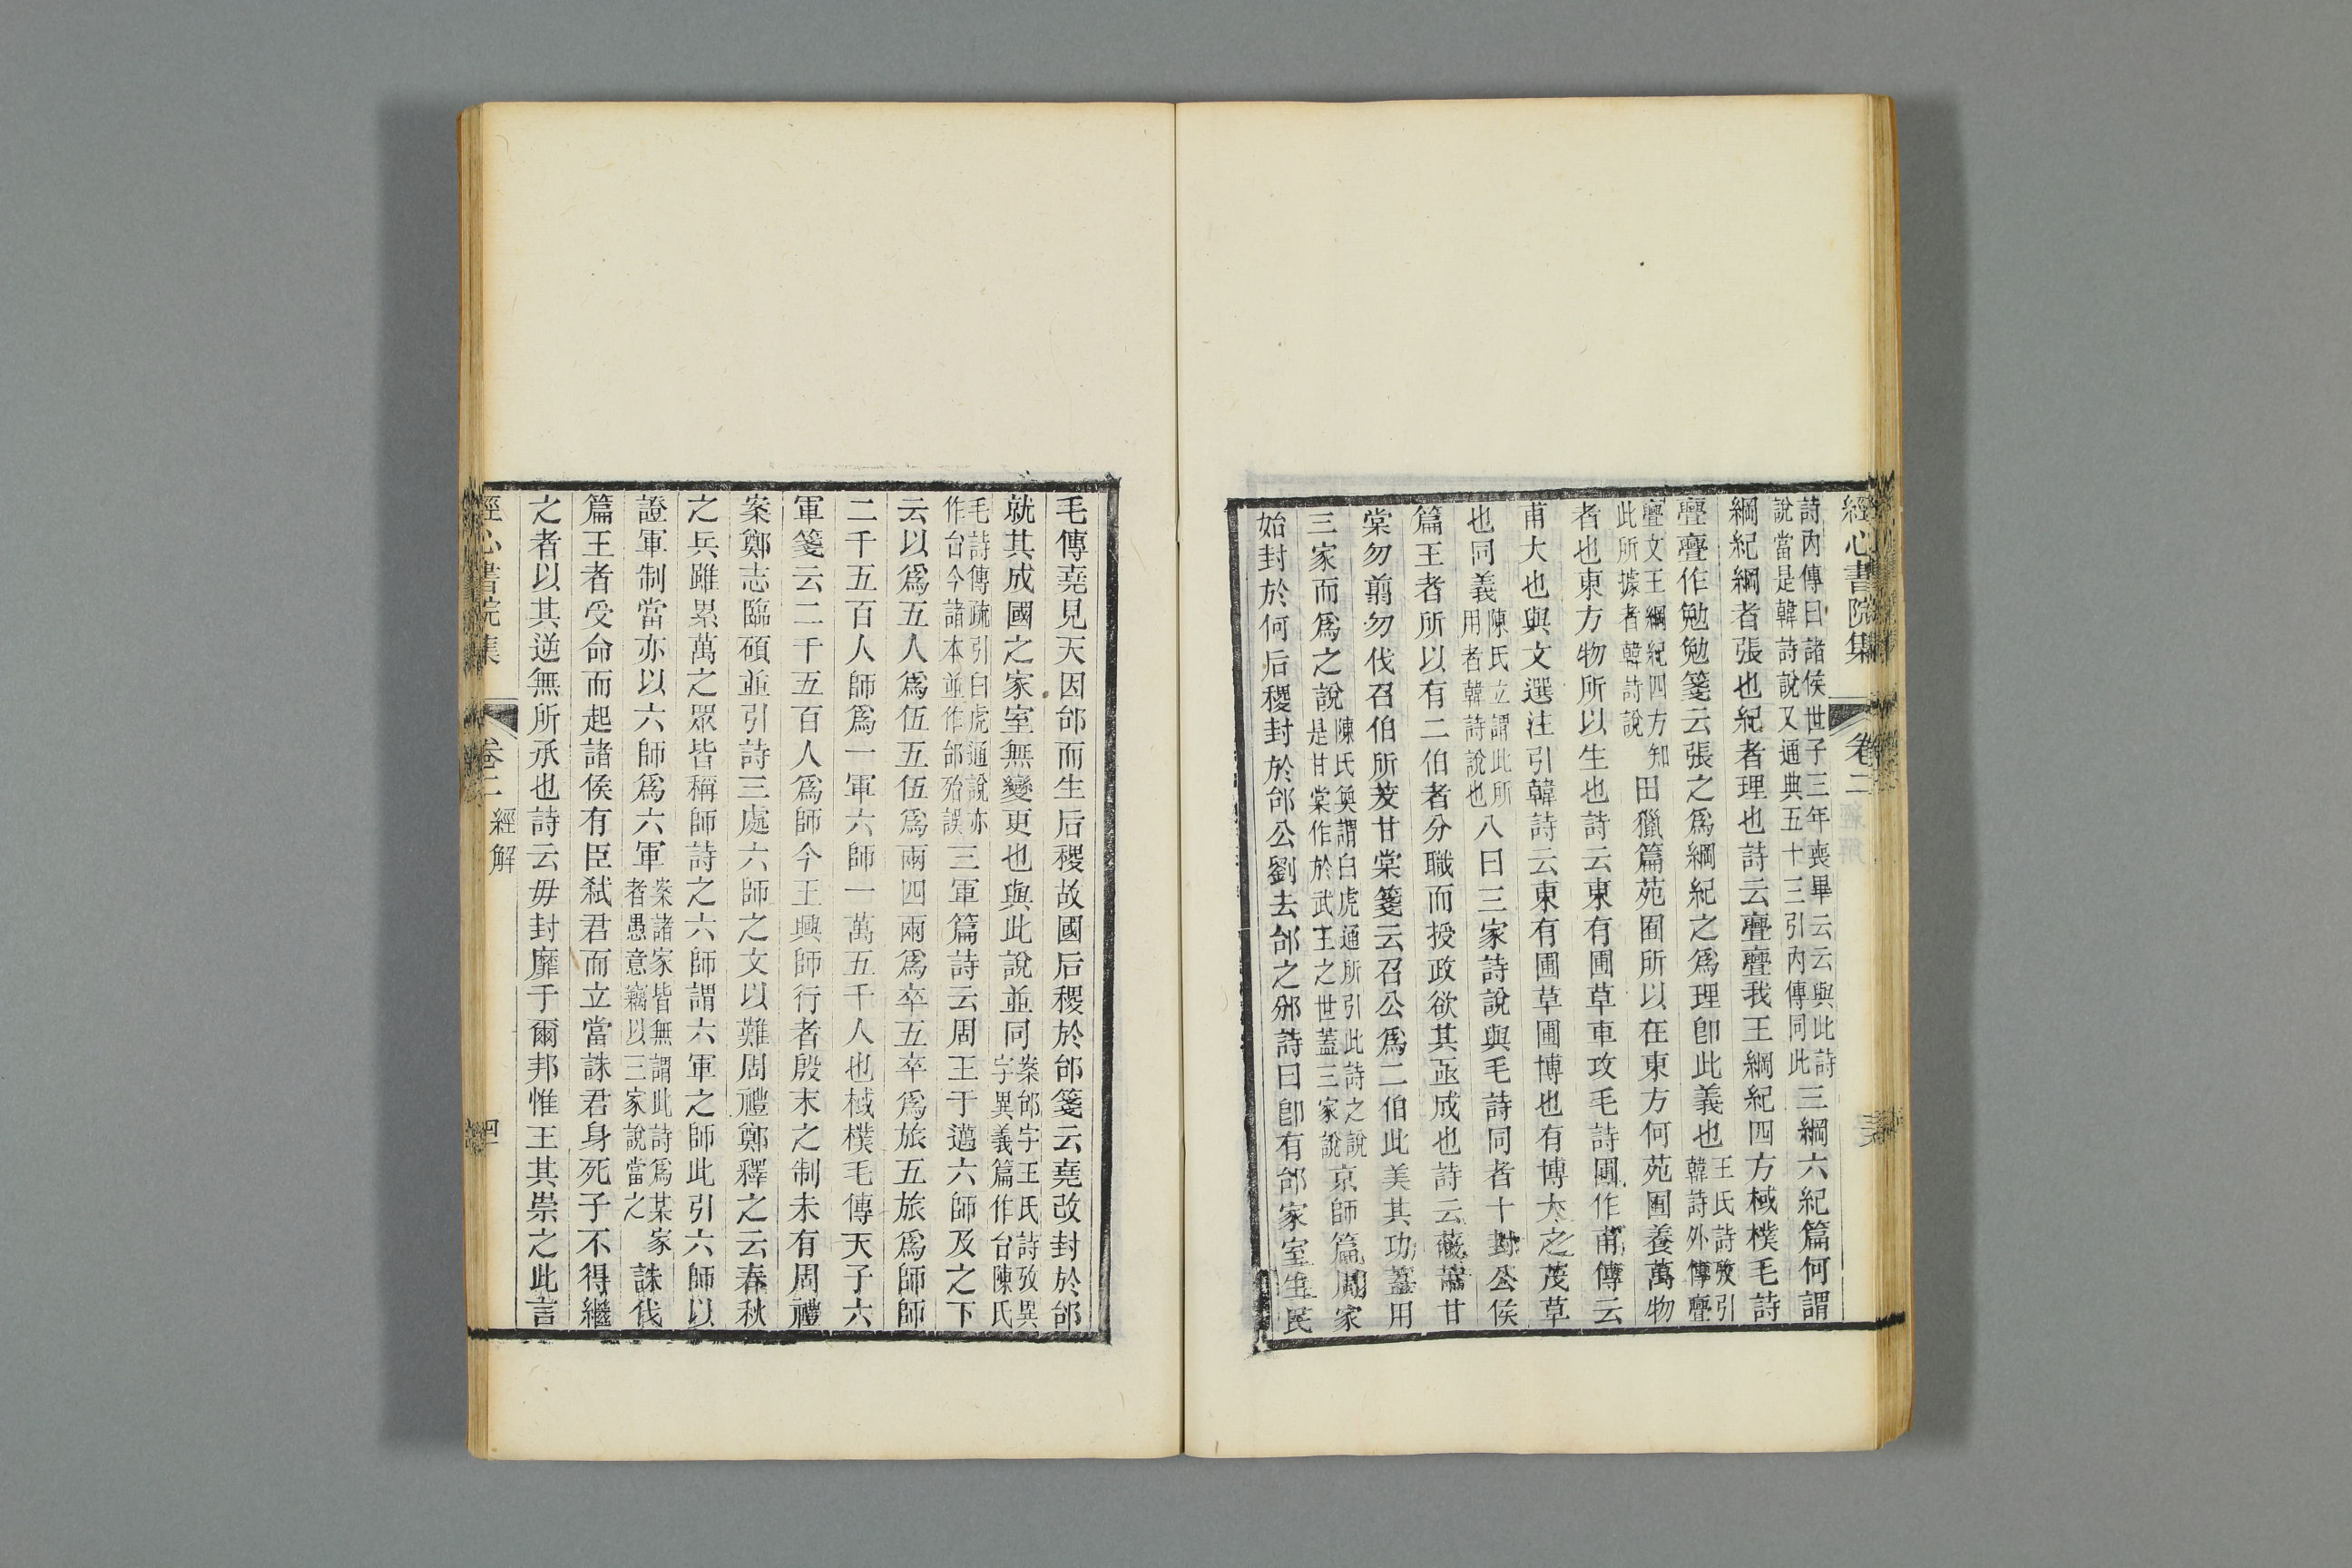 經心書院集 卷二
詩內傳曰諸侯世子三年喪畢云云與此詩
說當是韓詩說又通典五十三引內傳同此
三綱六紀篇何謂
綱紀綱者張也紀者理也詩云亹亹我王綱紀四方棫樸毛詩
亹亹作勉勉箋云張之爲綱紀之爲理卽此義也
王氏詩攷引
韓詩外傳亹
亹文王綱紀四方知
此所據者韓詩說
田獵篇苑囿所以在東方何苑囿養萬物
者也東方物所以生也詩云東有圃草車攻毛詩圃作甫傳云
甫大也與文選注引韓詩云東有圃草圃博也有博大之茂草
也同義
陳氏立謂此所
用者韓詩說也
八曰三家詩說與毛詩同者十封公侯
篇王者所以有二伯者分職而授政欲其亟成也詩云蔽芾甘
棠勿翦勿伐召伯所茇甘棠箋云召公爲二伯此美其功蓋用
三家而爲之說
陳氏奐謂白虎通所引此詩之說
是甘棠作於武王之世蓋三家說
京師篇周家
始封於何后稷封於邰公劉去邰之邠詩曰卽有邰家室生民
毛傳堯見天因邰而生后稷故國后稷於邰箋云堯改封於邰
就其成國之家室無變更也與此說並同
案邰字王氏詩攷異
字異義篇作台陳氏
毛詩傳疏引白虎通說亦
作台今諸本並作邰殆誤
三軍篇詩云周王于邁六師及之下
云以爲五人爲伍五伍爲兩四兩爲卒五卒爲旅五旅爲師師
二千五百人師爲一軍六師一萬五千人也棫樸毛傳天子六
軍箋云二千五百人爲師今王興師行者殷末之制未有周禮
案鄭志臨碩並引詩三處六師之文以難周禮鄭釋之云春秋
之兵雖累萬之眾皆稱師詩之六師謂六軍之師此引六師以
證軍制當亦以六師爲六軍
案諸家皆無謂此詩爲某家
者愚意竊以三家說當之
誅伐
篇王者受命而起諸侯有臣弑君而立當誅君身死子不得繼
之者以其逆無所承也詩云毋封靡于爾邦惟王其崇之此言
經心書院集 卷二 經解 四